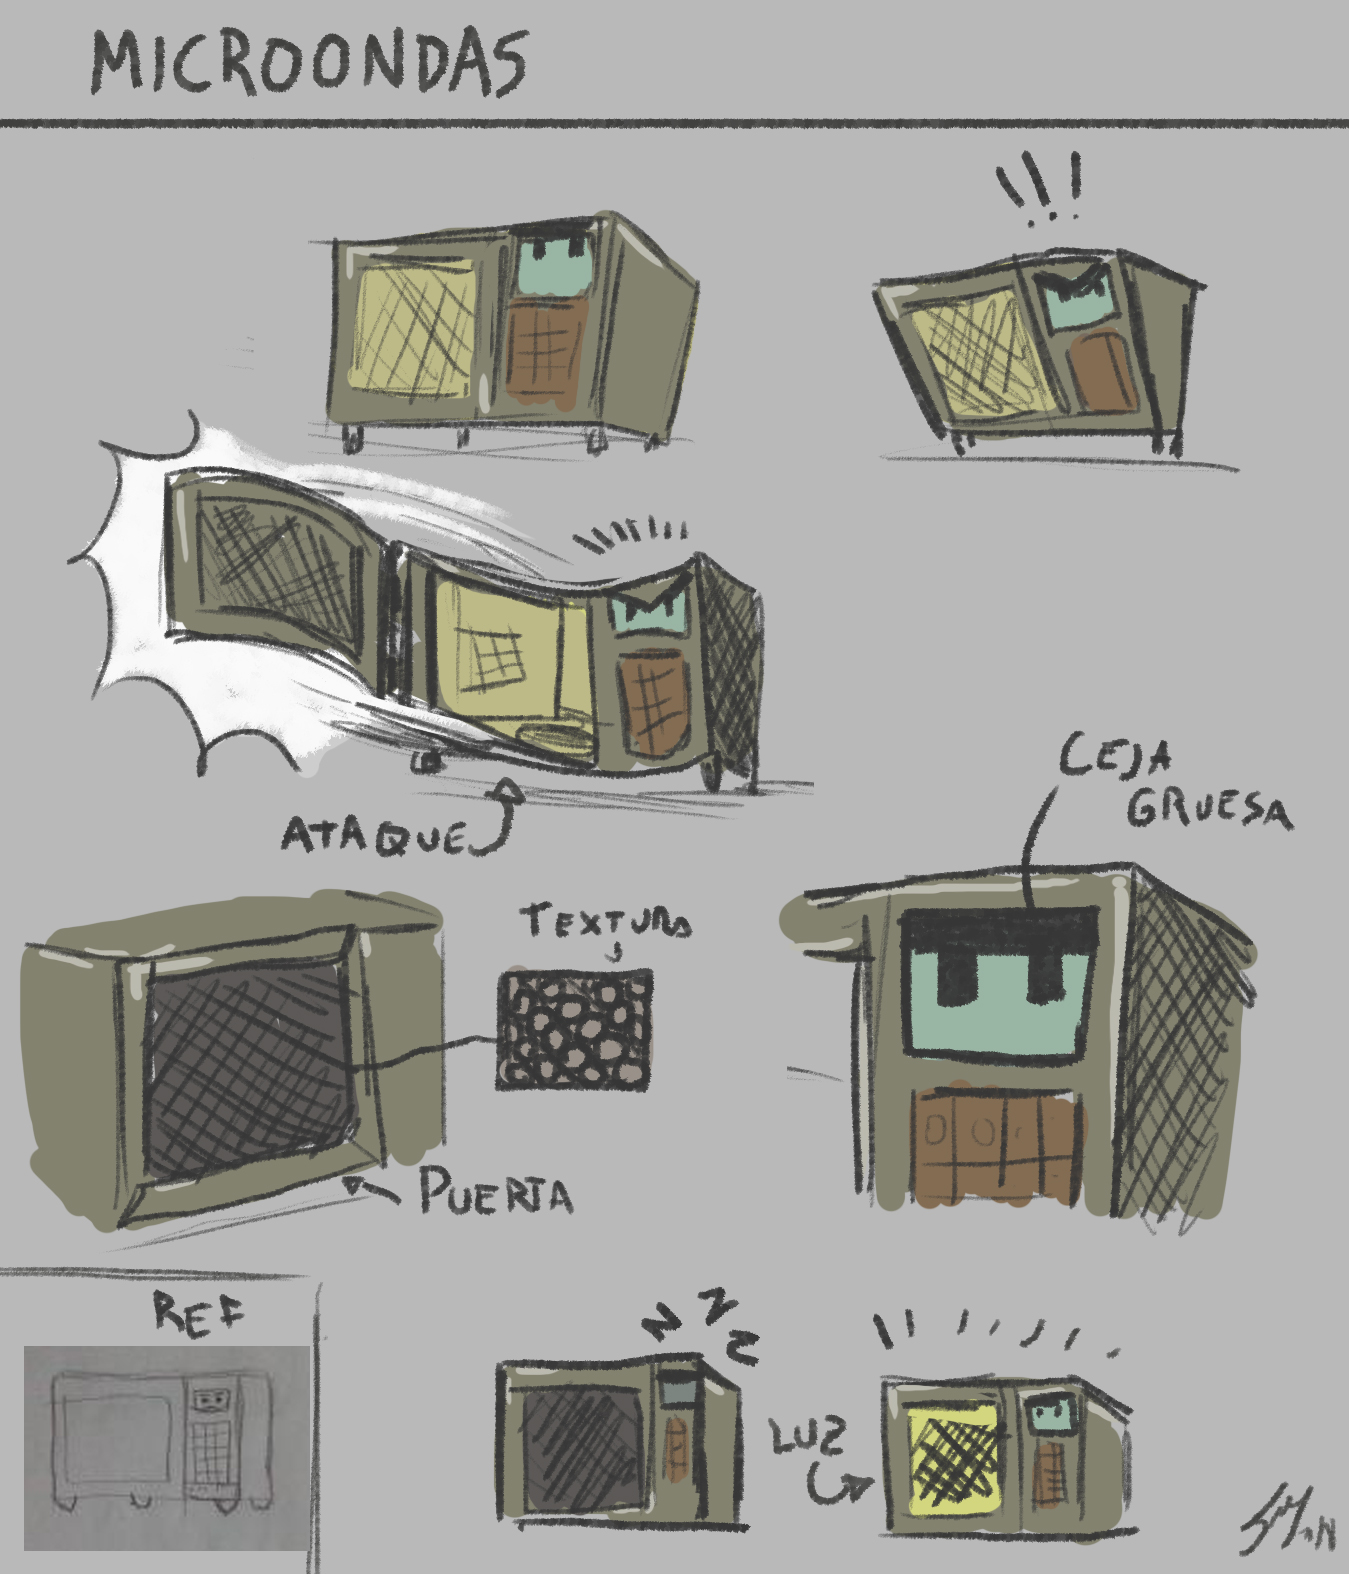 MICROONDAS
!!!
ATAQUE
CEJA
GRUESA
TEXTURA
PUERTA
REF
ZZZ
LUZ